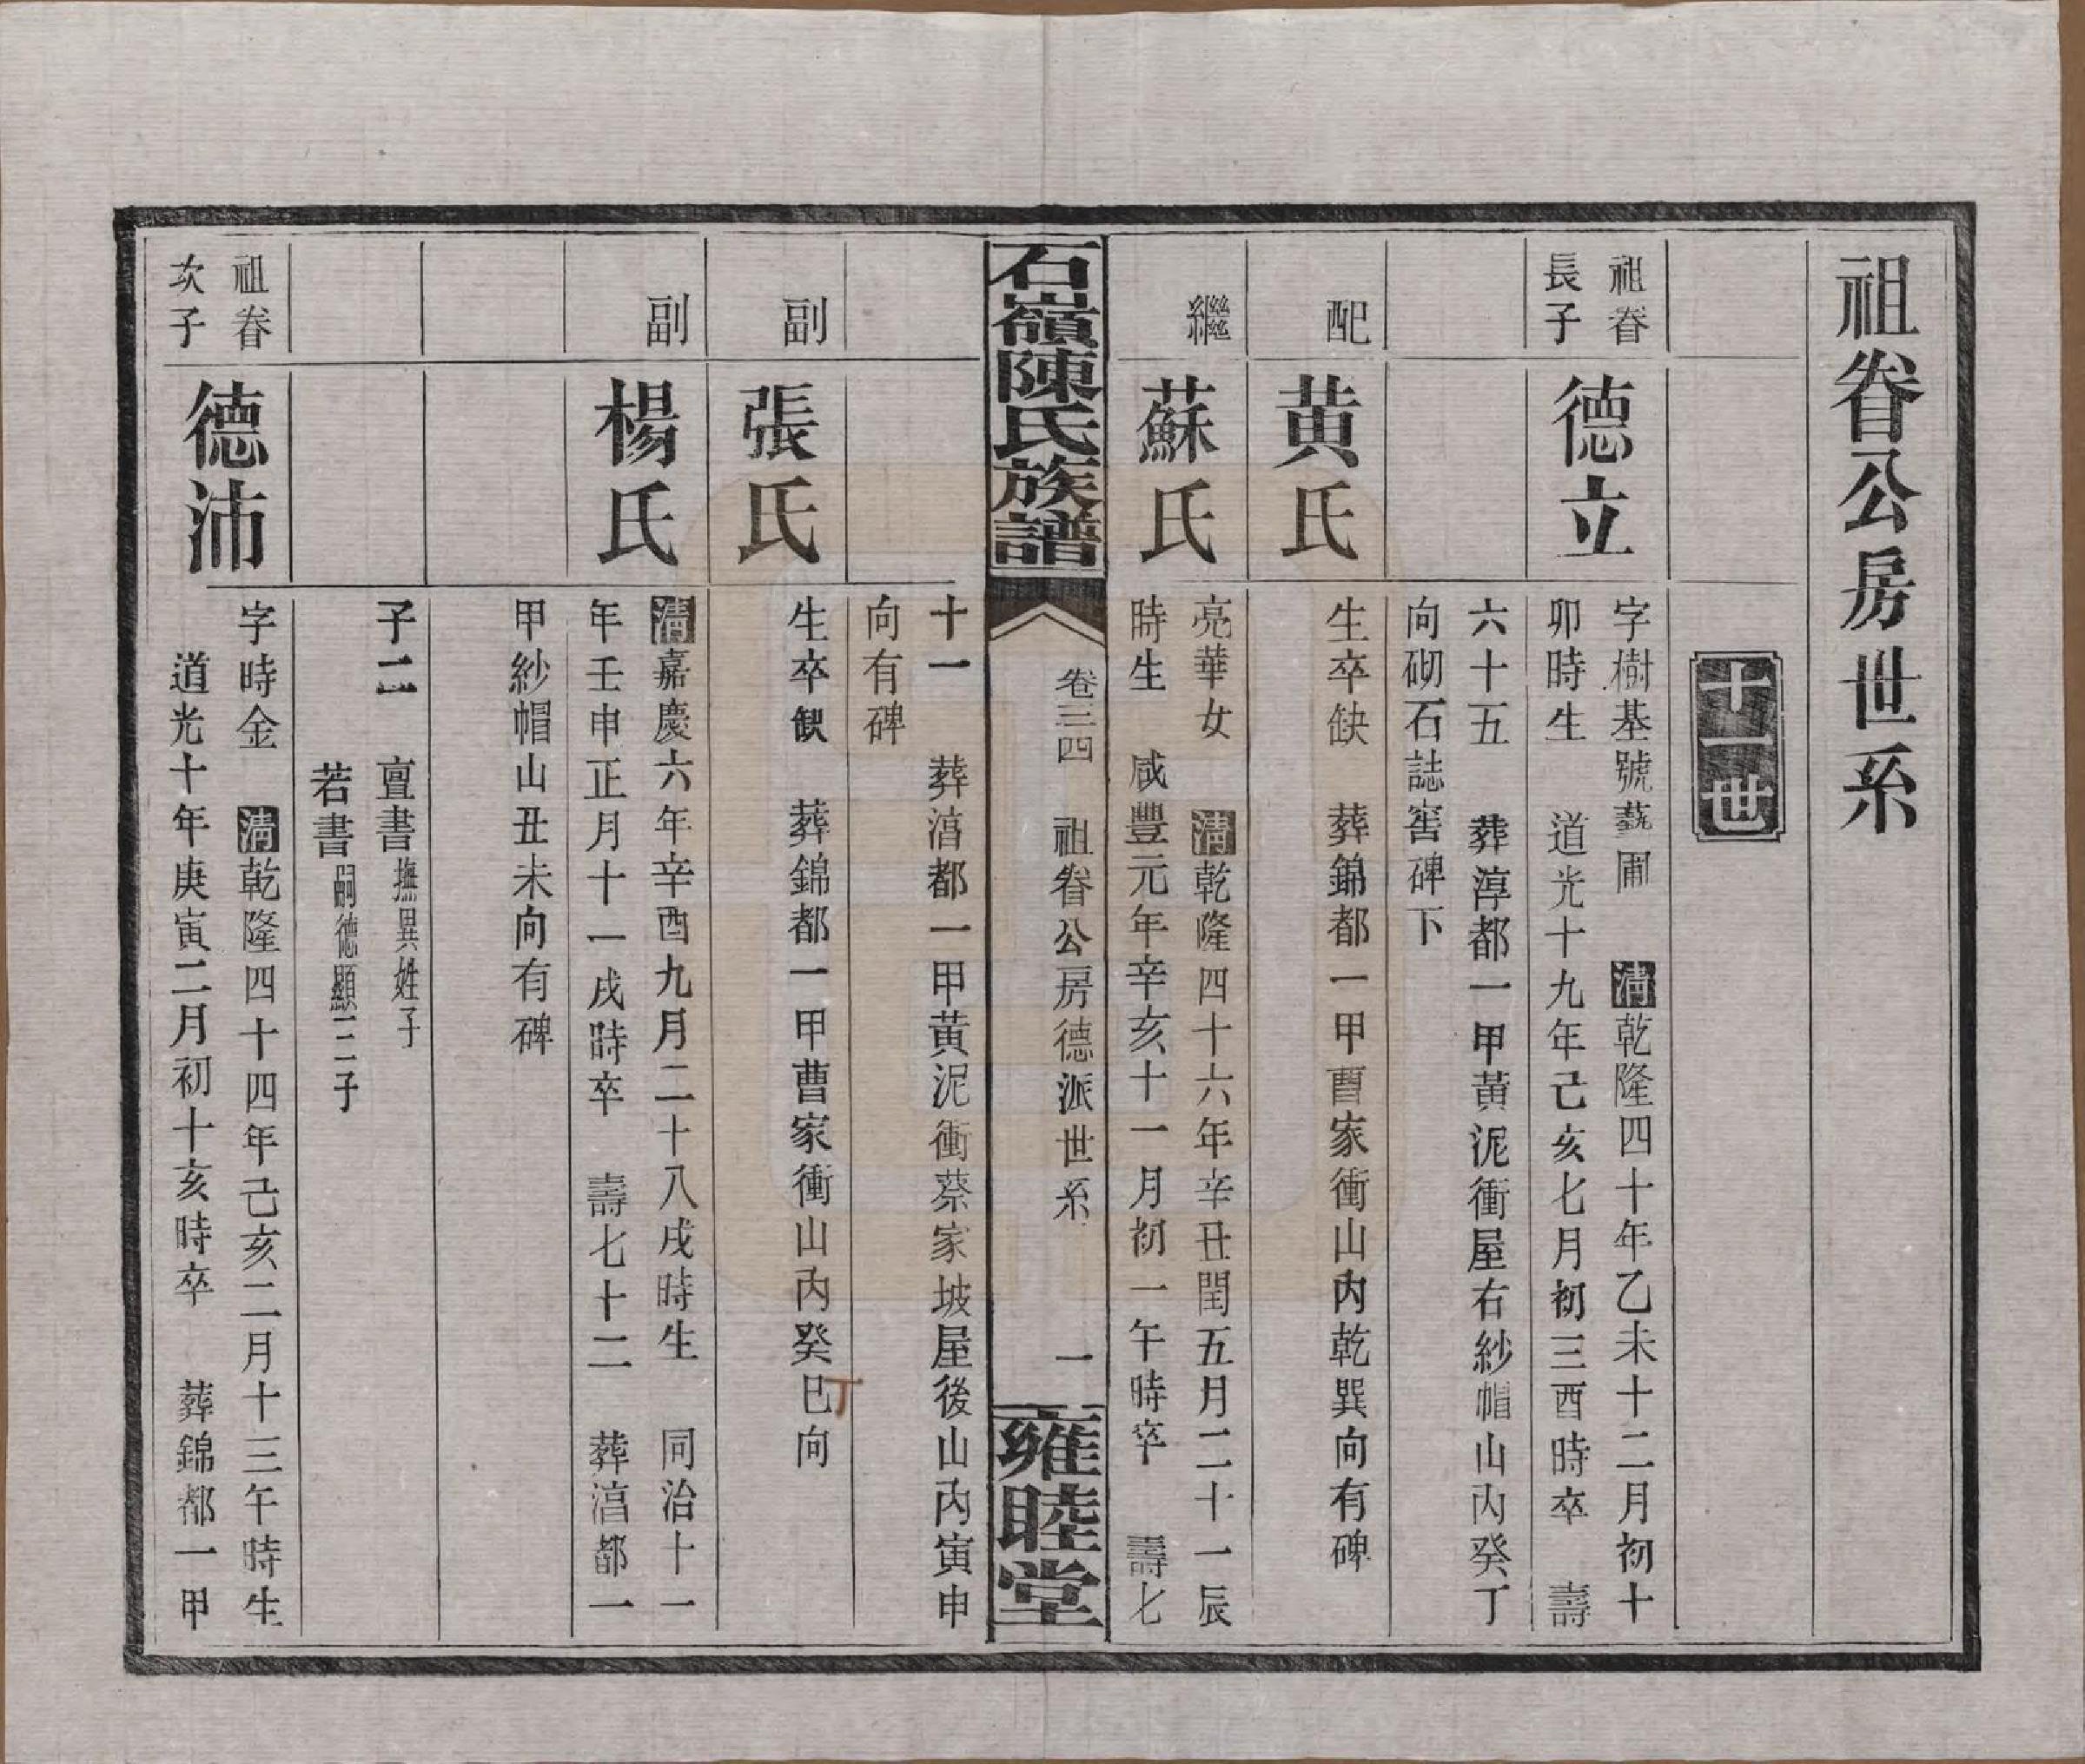 祖眷公房世系
十一世
祖眷
長子
德立
字樹基號蓺圃 清乾隆四十年乙未十二月初十
卯時生 道光十九年己亥七月初三酉時卒 壽
六十五 葬淳都一甲黃泥衝屋右紗帽山內癸丁
向砌石誌窖碑下
配
黄氏
生卒缺 葬錦都一甲曹家衝山內乾巽向有碑
繼
蘇氏
亮華女 清乾隆四十六年辛丑閏五月二十一辰
時生 咸豐元年辛亥十一月初一午時卒 壽七
石嶺陳氏族譜
卷三四 祖眷公房德派世系 一
雍睦堂
十一 葬淳都一甲黃泥衝蔡家坡屋後山內寅申
向有碑
副
張氏
生卒缺 葬錦都一甲曹家衝山內癸巳向
丁
副
楊氏
清嘉慶六年辛酉九月二十八戌時生 同治十一
年壬申正月十一戌時卒 壽七十二 葬淳都一
甲紗帽山丑未向有碑
子二 亶書撫異姓子
若書嗣德顯三子
祖眷
次子
德沛
字時金 清乾隆四十四年己亥二月十三午時生
道光十年庚寅二月初十亥時卒 葬錦都一甲